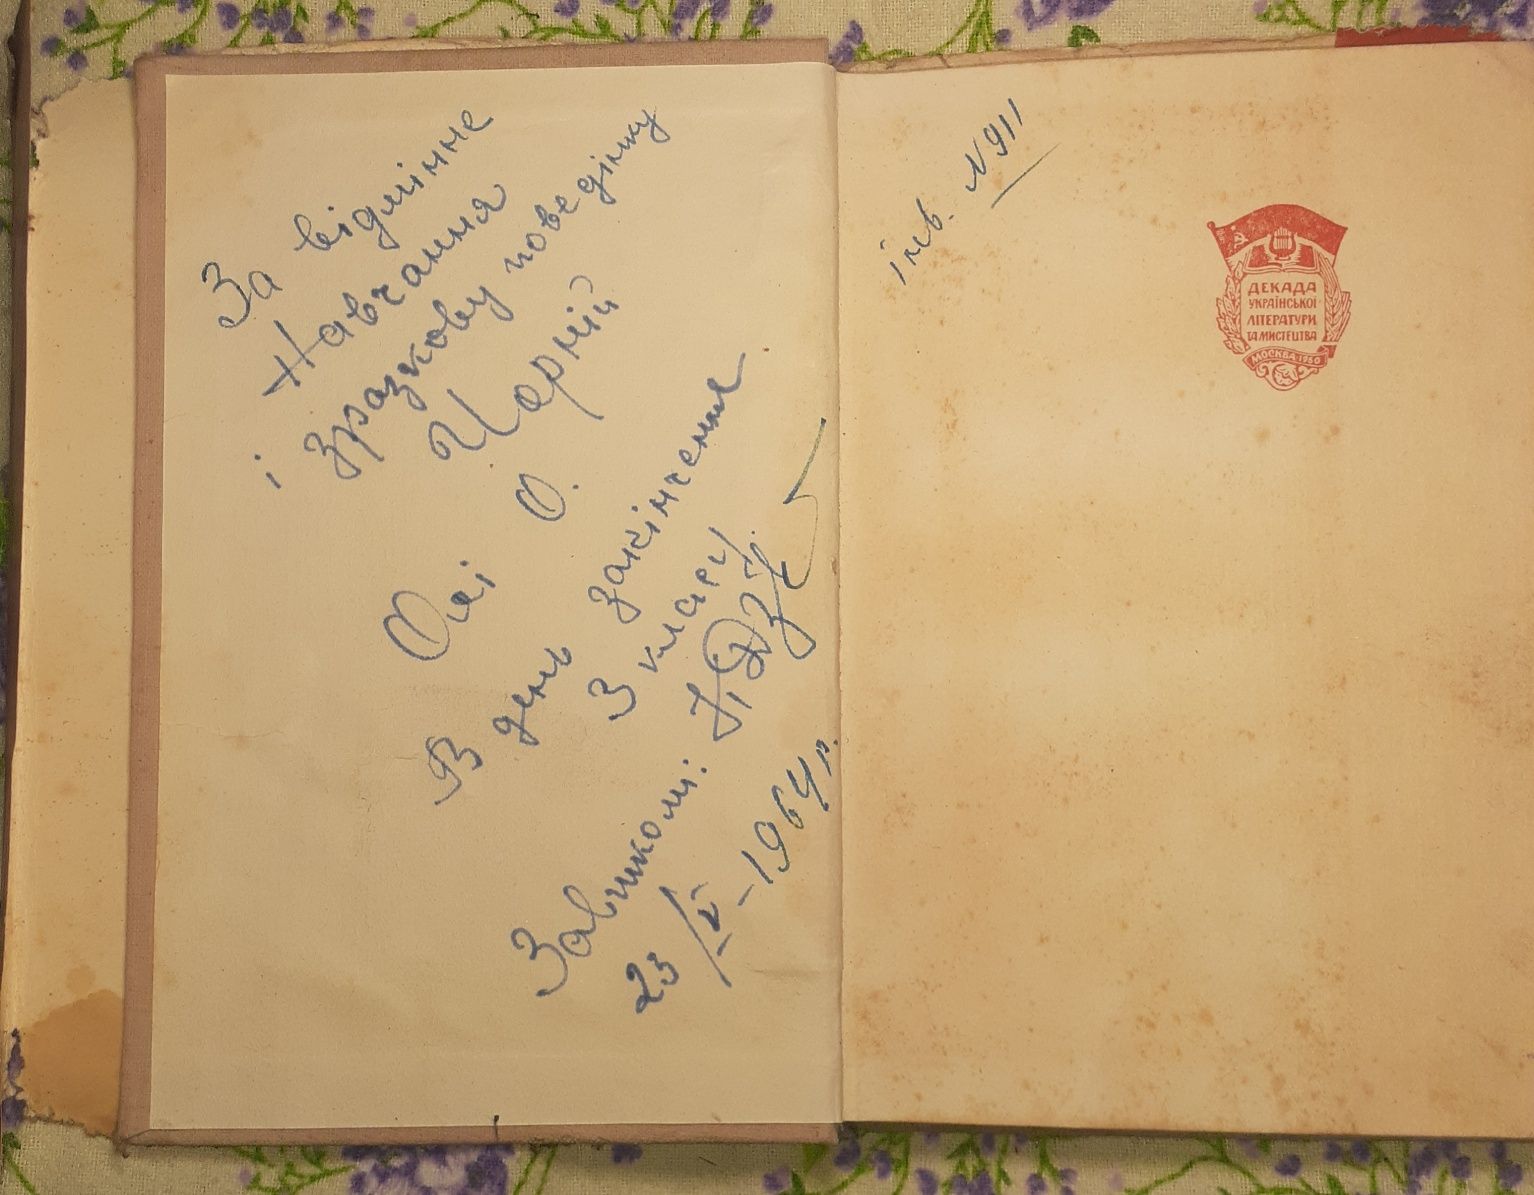 За відмінне
навчання
і зразкову поведінку
Чорній
Олі О.
В день закінчення
3 класу.
Завшколи:
23/V-1964р.
інв. N 911
ДЕКАДА
УКРАЇНСЬКОЇ
ЛІТЕРАТУРИ
ТА МИСТЕЦТВА
МОСКВА·1960